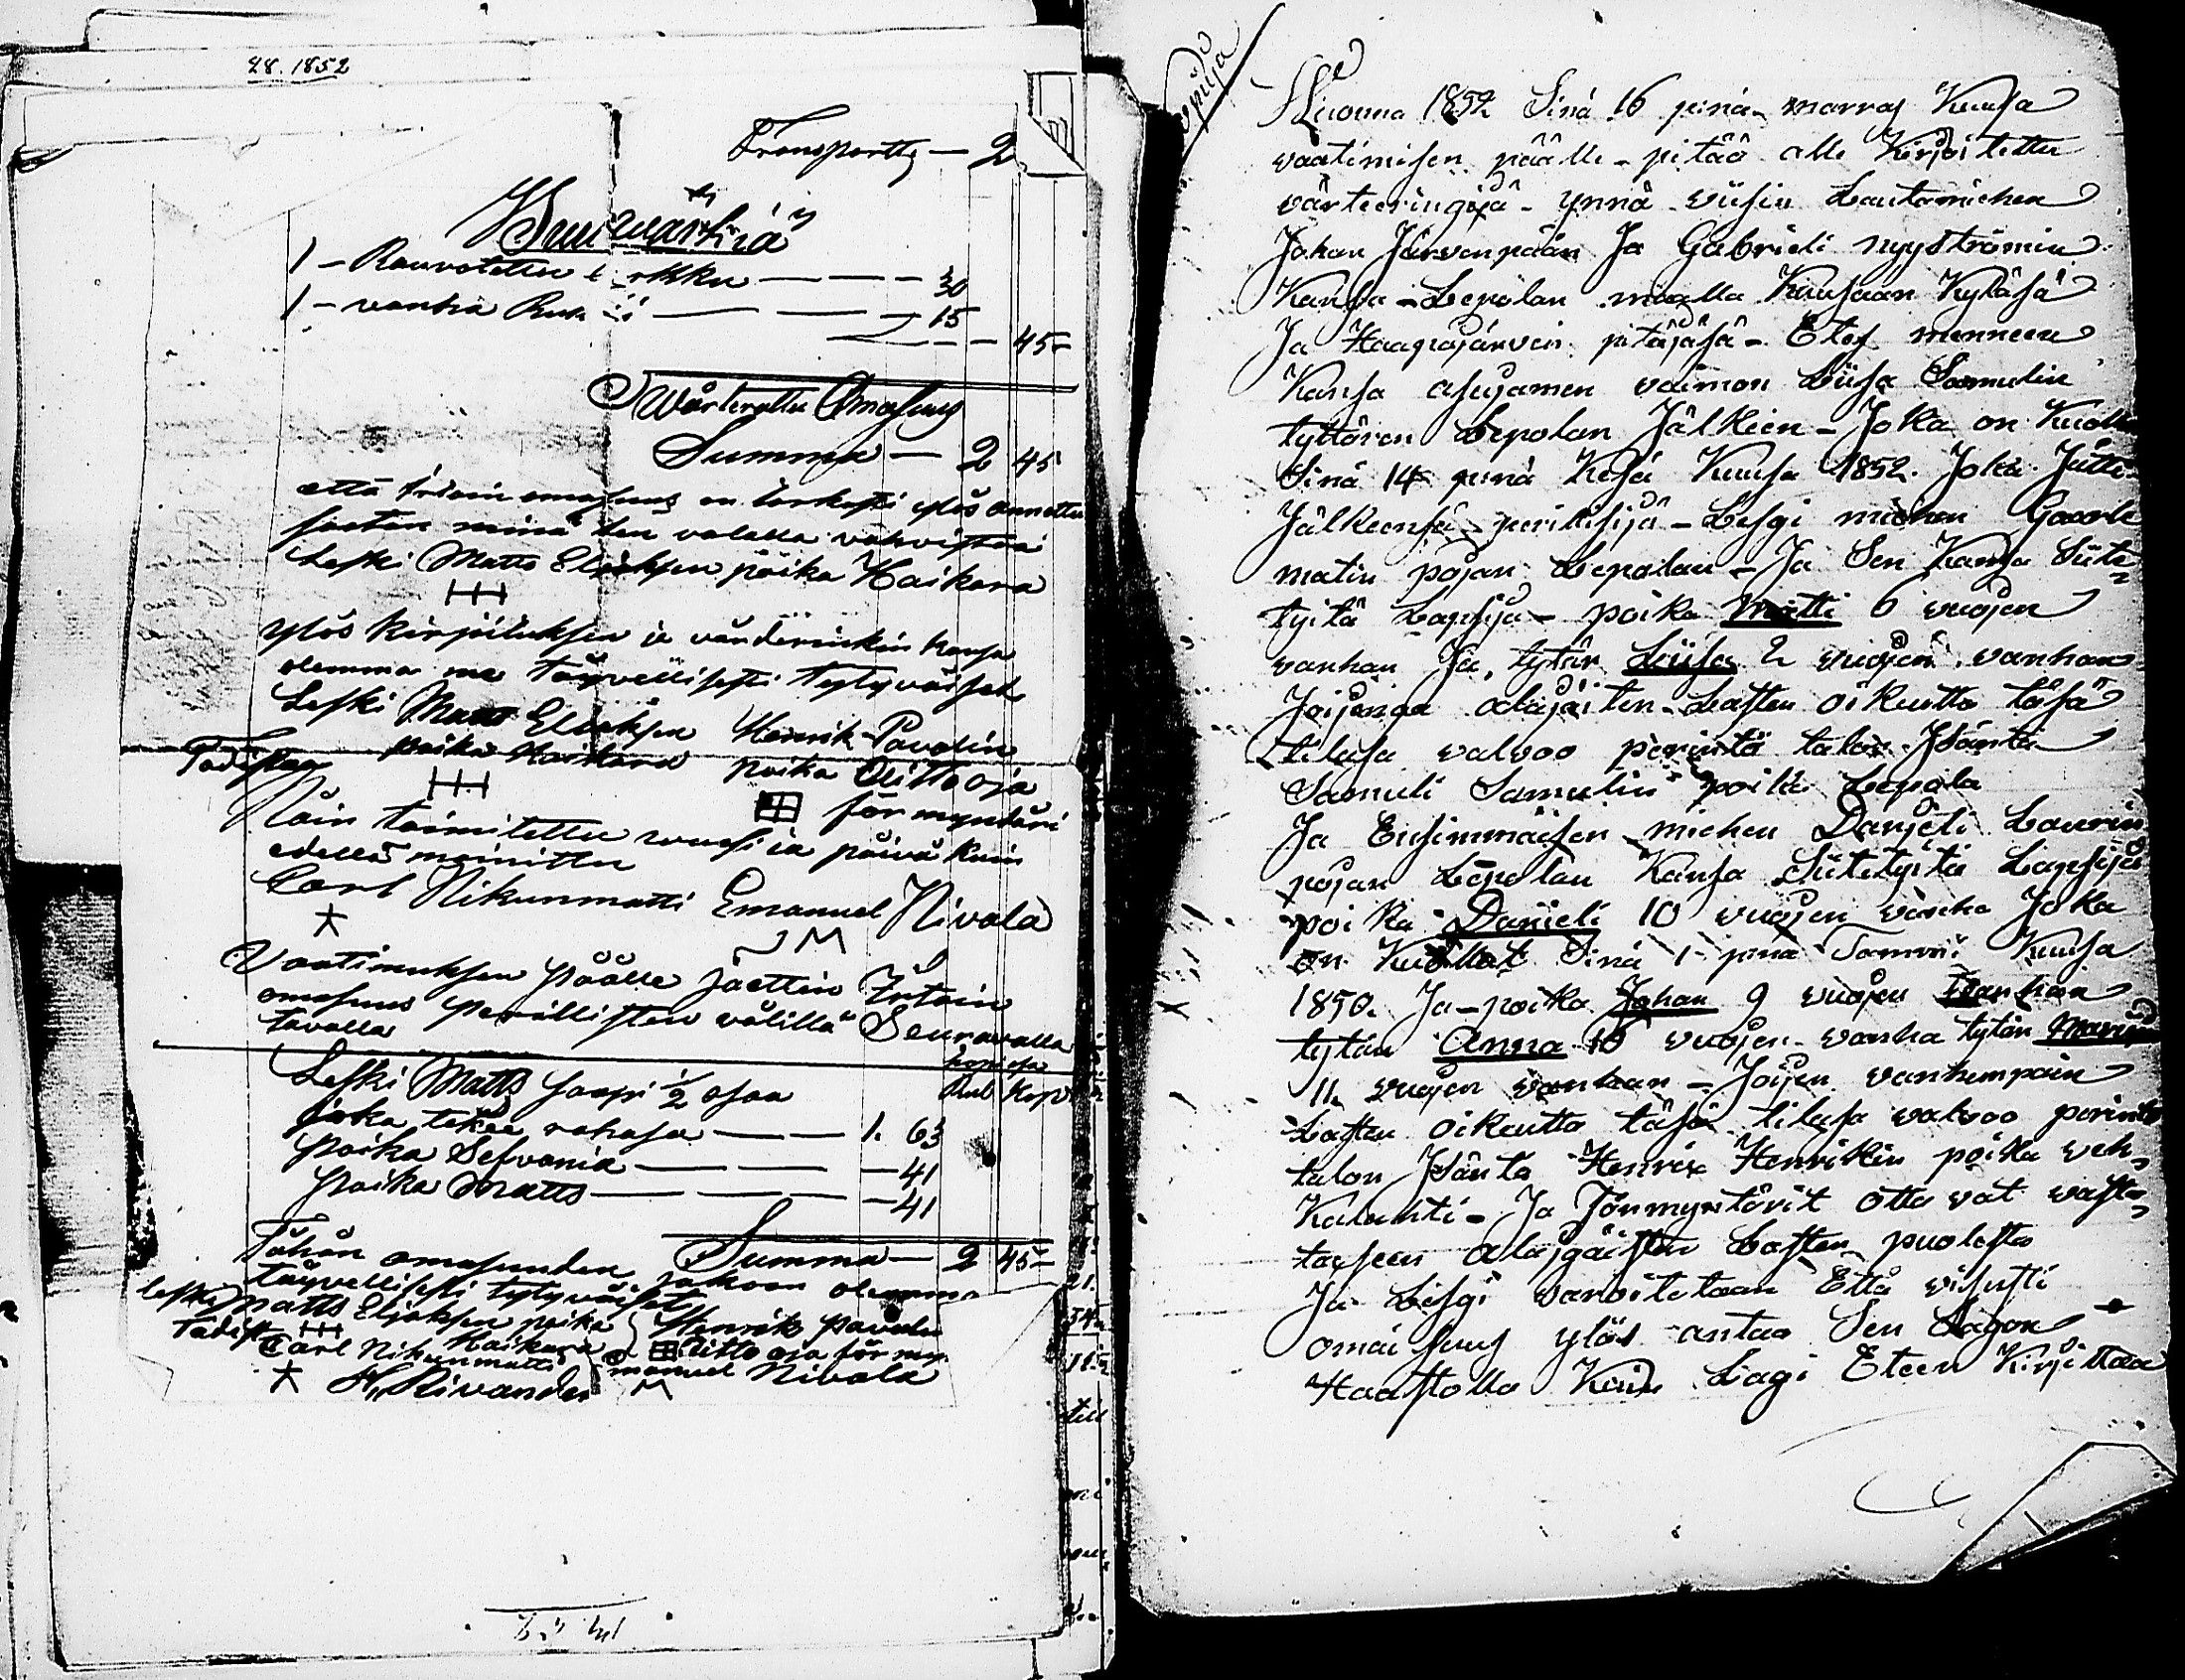 28. 1852
Transportti — 2
Puuwärkiä
1 – Rauvotettu kirkku — — — 30
1 – vanha — — — 15
— — 45 –
Wärterattu Omasuus
Summa — 2 45
että irtain omasuus on torkasti ylös annettu
saatan minä sen valalla vahvistaa
Leski Matts Eliaksen poika Haikara
ylös kirjoituksen ja värderinkin kansa
olemma me täyvellisesti tytyväiset
Leski Matts Eliaksen Henrik Pavolin
Todistaa poika Haikara poika Aittooja
för myndäri
Näin toimitettu vuosi ia päivä kuin
edellä mainittu
Carl Nikunmatti Emanuel Nivala
Vaatimuksen päälle jaettin Irtain
omasuus perillisten välillä Seuravalla
tavalla
hopiasa
Leski Matts saapi 1/2 osaa Rub Kop
joka tekee rahasa — — 1. 63
poika Sefvania — — — 41
poika Matts — — — 41
Summa — 2 45 –
Tähän omasuuden jakoon olemma
täyvellisesti tytyväiset
Leski Matts Eljaksen poika Henrik Pavolin
Todista Haikara Aitto oja för my
Carl Nikunmatti Emanuel Nivala
H. Rivander
Kopiija
Wuonna 1852 Sinä 16 pinä marras Kuusa
vaatimisen päälle – pitää alle Kirjoitettu
värteeringijä – ynnä viisin Lautamiehen
Johan Järvenpään Ja Gabrieli nyyströmin
Kansa – Lepolan maalla Kuusaan Kylässä
Ja Haapajärvein pitäjäsä – Etes menneen
Kansa asujamen vaimon Liisa Samulin
tyttären Lepolan Jälkien – Joka on Kuollu
Sinä 14 pinä Kesä Kuusa 1852. Joka Jätti
Jälkeensä perillisijä – Lesgi miehen Gaarle
matin pojan Lepolan – Ja Sen Kansa Siite-
tyitä Lapsija – poika Matti 6 vuojen
vanhan Ja tytär Liisa 2 vuojen vanhan
Joijenga alajäiten Lasten oikeutta täsä
tilasa valvoo perintö talon Isäntä
Samuli Samulin poika Lepola
Ja Ensimmäisen miehen Danjeli Laurin
pojan Lepolan Kansa Siitetyitä Lapsija
poika Danieli 10 vuojen vanha Joka
on Kuollut Sinä 1 pinä Tammi Kuusa
1850. Ja – poika Johan 9 vuojen vanhan
tytär Anna 16 vuojen vanha tytär Maria
11 vuojen vanhaan – Joijen vanhempain
Lasten oikeutta täsä tilasa valvoo perintö
talon Isäntä Henrik Henrikin poika veh-
Kalahti – Ja Förmyntärit otta vat vasta-
taxseen alajgäisten Lasten puolesta
Ja Lesgi varoitetaan Että visusti
omaisuus ylös antaa Sen Lagon
Haastolla Kuin Lagi Eteen Kirjoittaa